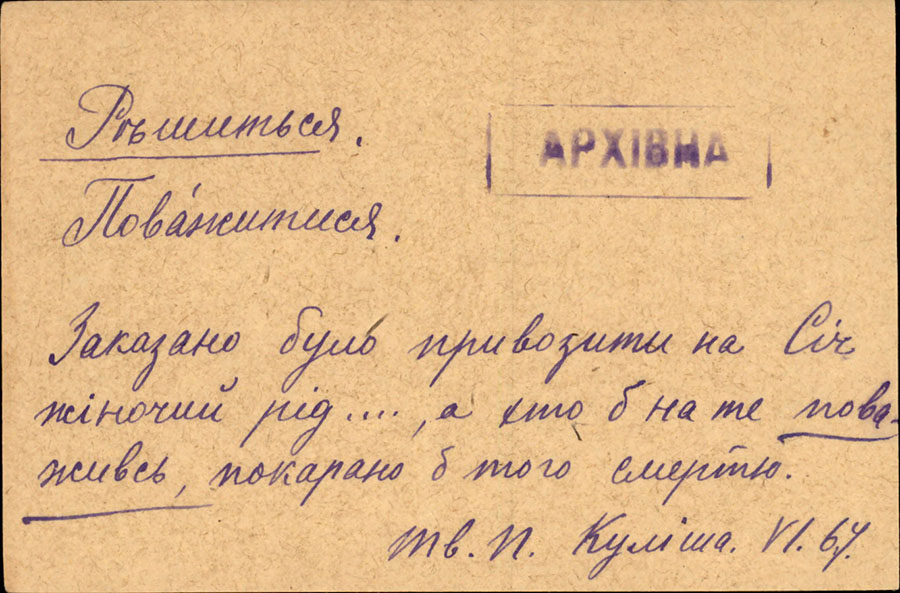 Рѣшиться.
АРХІВНА
Пова́житися.
Заказано було привозити на Січ
жіночий рід...., а хто б на те пова-
живсь, покарано б того смертю.
Тв. П. Куліша. VI. 67.